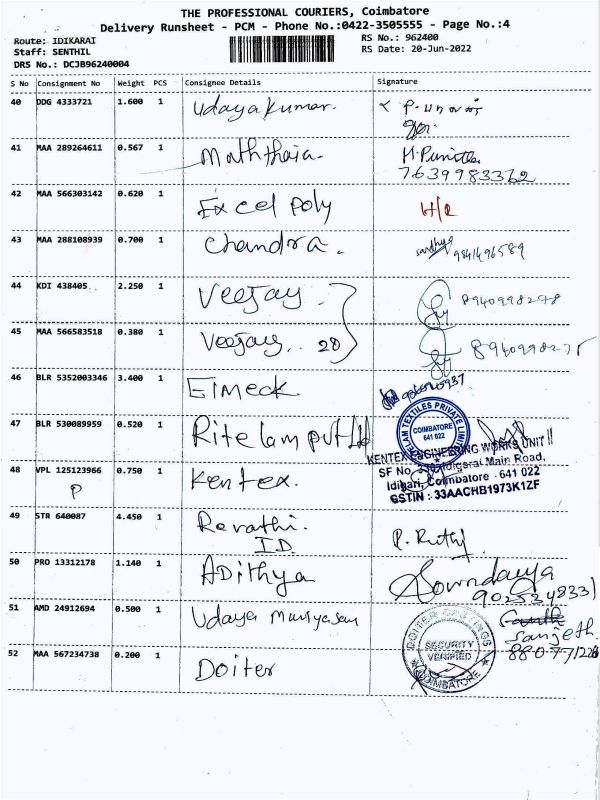 THE PROFESSIONAL COURIERS, Coimbatore
Delivery Runsheet - PCM - Phone No.:0422-3505555 - Page No.:4
Route: IDIKARAI
RS No.: 962400
Staff: SENTHIL
RS Date: 20-Jun-2022
DRS No.: DCJB96240004
S No Consignment No Weight PCS Consignee Details Signature
40 DDG 4333721 1.600 1 Udayakumar.
41 MAA 289264611 0.567 1 Maththaia. M. Punitha
7639983362
42 MAA 566303142 0.620 1 Excel poly H/R
43 MAA 288108939 0.700 1 Chandra. sandhya 9841496589
44 KDI 438405 2.250 1 Veejay. 8940998278
45 MAA 566583518 0.380 1 Veejay.. 28
46 BLR 5352003346 3.400 1 Eimeck
47 BLR 530089959 0.520 1 Ritelam pvt Ltd
TEXTILES PRIVATE
COIMBATORE
641 022
48 VPL 125123966 0.750 1 Kentex.
P
KENTEX ENGINEERING WORKS UNIT II
SF No. Main Road,
Coimbatore - 641 022
GSTIN : 33AACHB1973K1ZF
49 STR 640087 4.450 1 Revathi.
I.D
50 PRO 13312178 1.140 1 ADithya Sowndarya
51 AMD 24912694 0.500 1 Udaya Muriyasan
Sanjeth.
52 MAA 567234738 0.200 1 Doiter
DOITER CASTINGS
SECURITY
VERIFIED
COIMBATORE